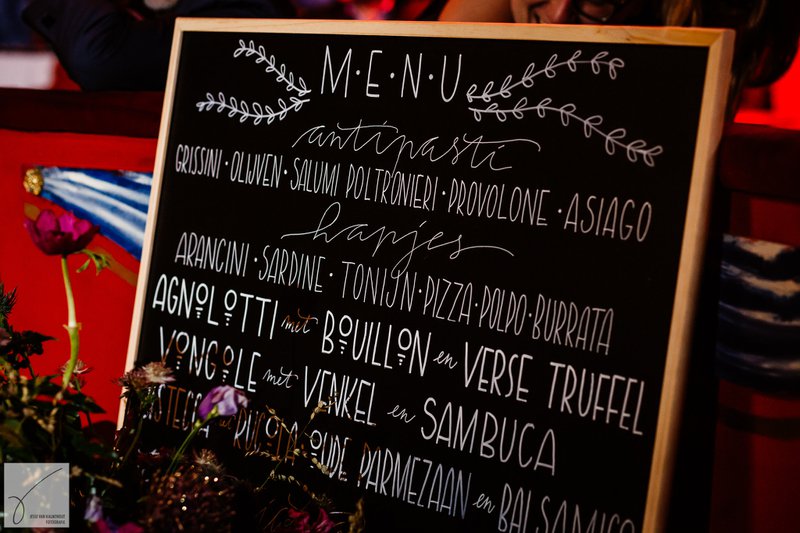 M·E·N·U
antipasti
GRISSINI · OLIJVEN · SALUMI POLTRONIERI · PROVOLONE · ASIAGO
hapjes
ARANCINI · SARDINE · TONIJN · PIZZA · POLPO · BURRATA
AGNOLOTTI met BOUILLON en VERSE TRUFFEL
VONGOLE met VENKEL en SAMBUCA
RUCOLA OUDE PARMEZAAN en BALSAMICO